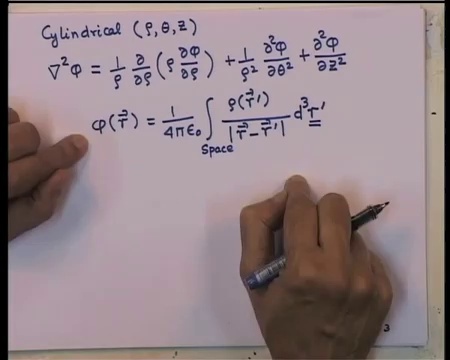 Cylindrical (ρ, θ, z)
∇²φ = 1/ρ ∂/∂ρ (ρ ∂φ/∂ρ) + 1/ρ² ∂²φ/∂θ² + ∂²φ/∂z²
φ(r⃗) = 1/4πε₀ ∫Space ρ(r⃗′)/|r⃗ − r⃗′| d³r′
3